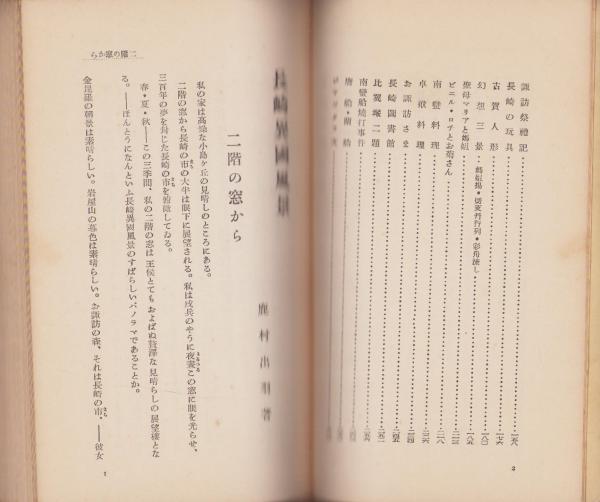 諏訪祭禮記
長崎の玩具
古賀人形
幻想三景
聖母マリアと媽姐
ピエル・ロチとお菊さん
南蠻料理
卓袱料理
お諏訪さま
長崎圖書館
比翼塚二題
南蠻船燒打事件
唐船・蘭船
2
長崎異國風景
鹿村出羽著
二階の窓から
私の家は高燥な小島ヶ丘の見晴しのところにある。
二階の窓から長崎の市の大半は眼下に展望される。私は戍兵のやうに夜晝この窓に眼を光らせ、
三百年の夢を封じた長崎の市を俯瞰してゐる。
春・夏・秋――この三季間、私の二階の窓は王侯とてもおよばぬ贅澤な見晴らしの展望樓とな
る。――ほんとうになんといふ長崎異國風景のすばらしいパノラマであることか。
金毘羅の朝景は素晴らしい。岩屋山の暮色は素晴らしい。お諏訪の森、それは長崎の市、――彼女
二階の窓から
1